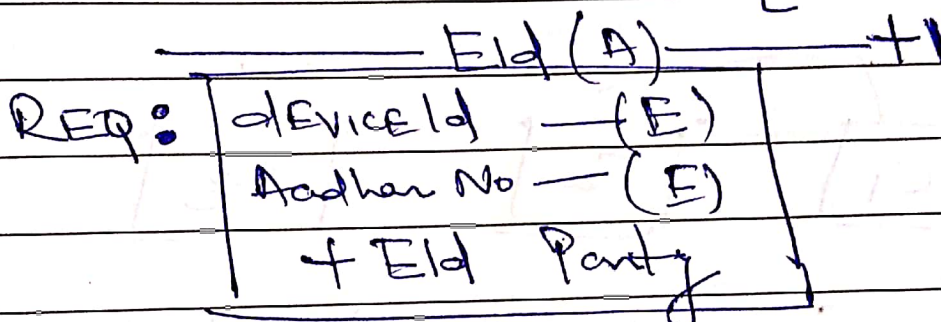 EId (A) +1
REQ: dEVICEId — (E)
Aadhar No — (E)
+ EId Party